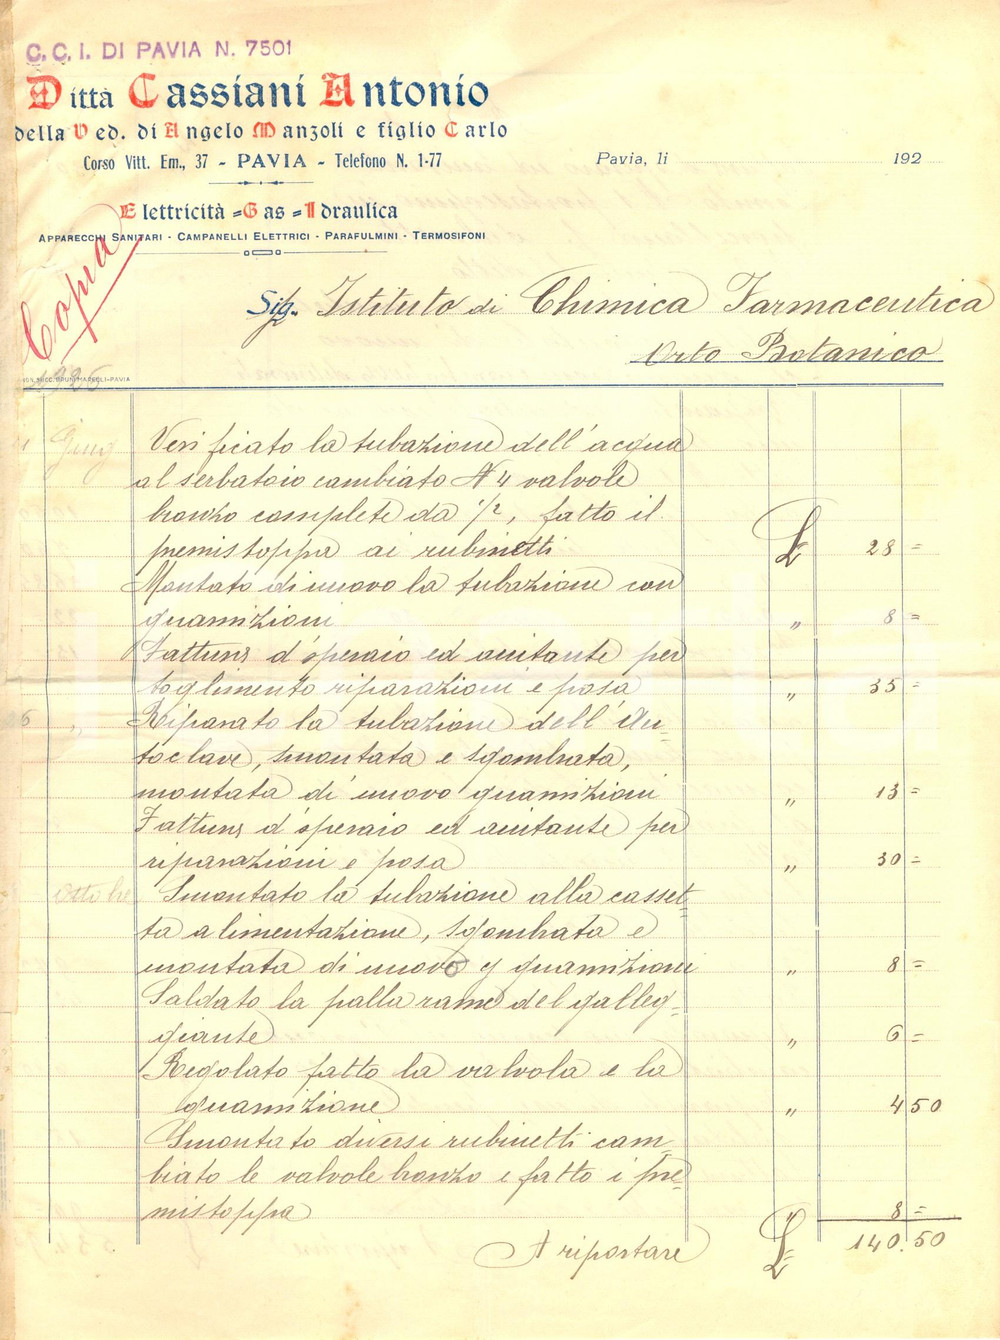 C. C. I. DI PAVIA N. 7501
Ditta Cassiani Antonio
della Ved. di Angelo Manzoli e figlio Carlo
Corso Vitt. Em., 37 - PAVIA - Telefono N. 1-77
Pavia, li 192
Elettricità = Gas = Idraulica
APPARECCHI SANITARI - CAMPANELLI ELETTRICI - PARAFULMINI - TERMOSIFONI
Copia
Sig. Istituto di Chimica Farmaceutica
Orto Botanico
1926
Giug Verificato la tubazione dell'acqua
al serbatoio cambiato N 4 valvole
bronzo complete da 1/2, fatto il
premistoppa ai rubinetti £ 28 =
Montato di nuovo la tubazione con
guarnizioni " 8 =
Fatture d'operaio ed aiutante per
toglimento riparazioni e posa " 35 =
26 " Riparato la tubazione dell'Au=
toclave, smontata e sgombrata,
montata di nuovo guarnizioni " 13 =
Fatture d'operaio ed aiutante per
riparazioni e posa " 30 =
Ottobre Smontato la tubazione alla casset=
ta alimentazione, sgombrata e
montata di nuovo g guarnizioni " 8 =
Saldato la palla rame del galleg=
giante " 6 =
Regolato fatto la valvola e la
guarnizione " 4 50
Smontato diversi rubinetti cam
biato le valvole bronzo e fatto i pre=
mistoppa " 8 =
A riportare £ 140.50